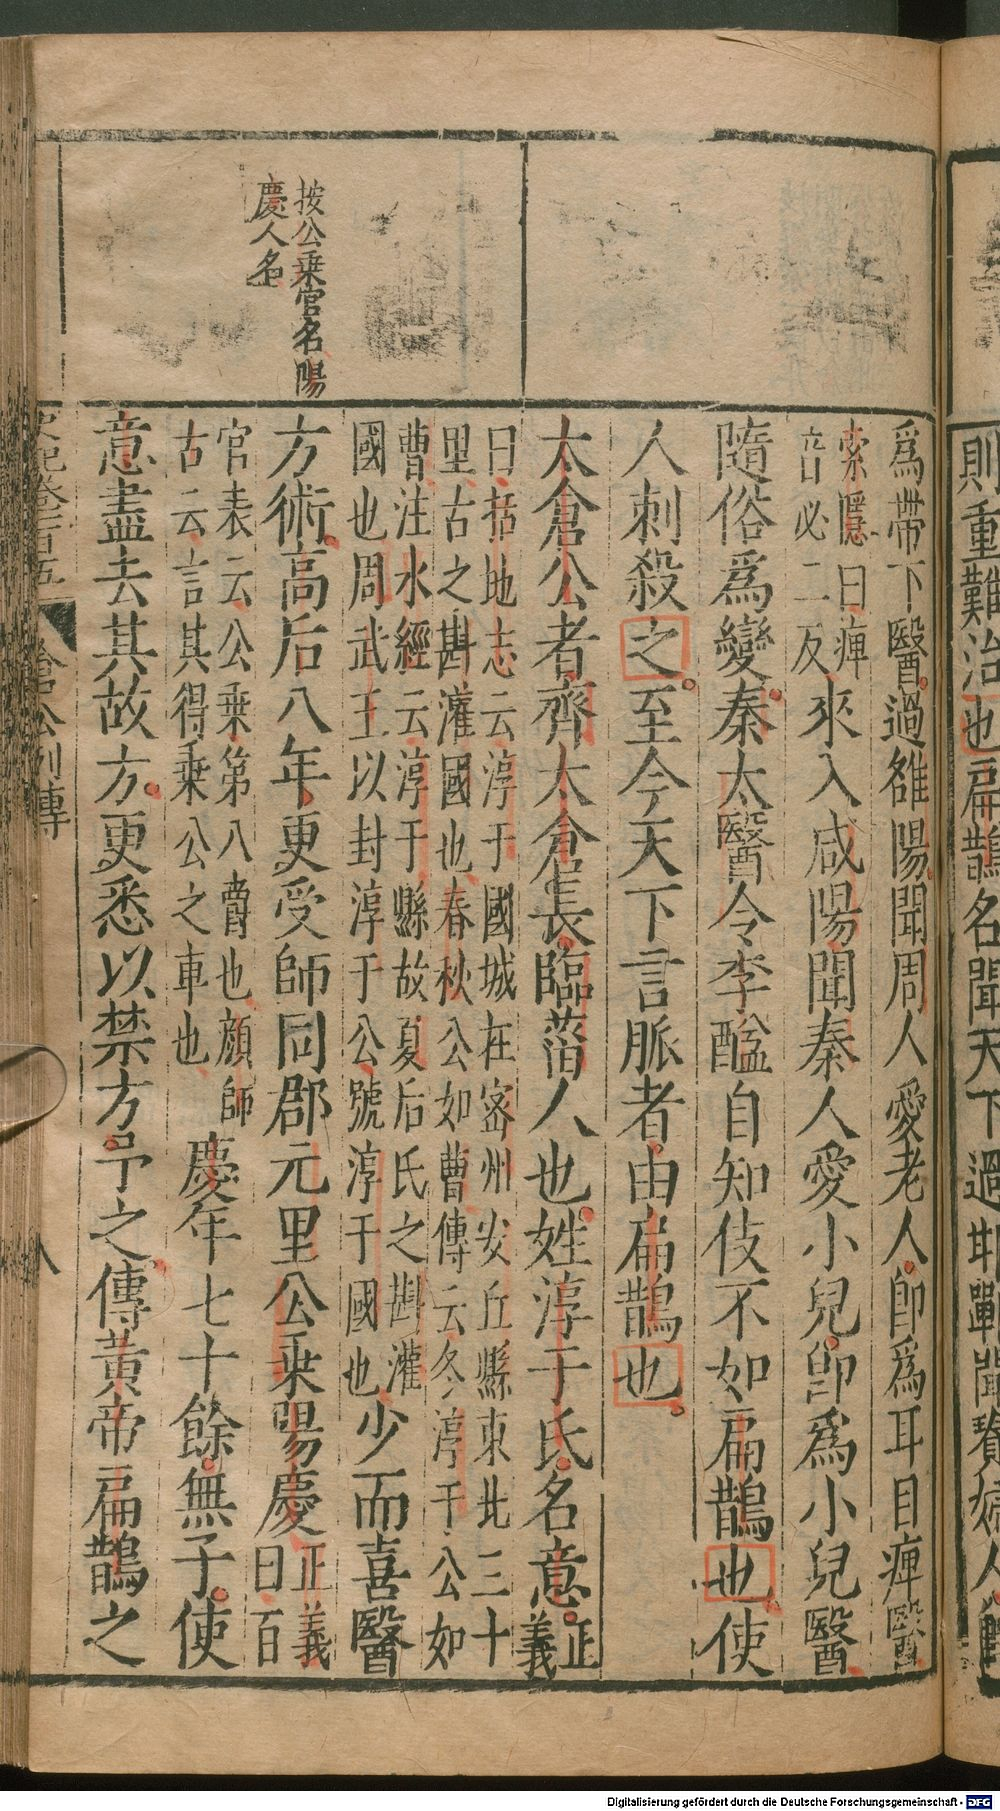 則重難治也扁鵲名聞天下過邯鄲聞貴
按公乗官名陽
慶人名
爲帶下醫過雒陽聞周人愛老人卽爲耳目痺醫
索隱曰痺
音必二反來入咸陽聞秦人愛小兒卽爲小兒醫
隨俗爲變秦太醫令李醯自知伎不如扁鵲也使
人刺殺之至今天下言脈者由扁鵲也
太倉公者齊太倉長臨菑人也姓淳于氏名意正
義
曰括地志云淳于國城在密州安丘縣東北三十
里古之斟灌國也春秋公如曹傳云冬淳于公如
曹注水經云淳于縣故夏后氏之斟灌
國也周武王以封淳于公號淳于國也少而喜醫
方術高后八年更受師同郡元里公乗陽慶正義
曰百
官表云公乗第八爵也顔師
古云言其得乗公之車也慶年七十餘無子使
意盡去其故方更悉以禁方予之傳黃帝扁鵲之
史記卷百五 倉公列傳 八
Digitalisierung gefördert durch die Deutsche Forschungsgemeinschaft - DFG